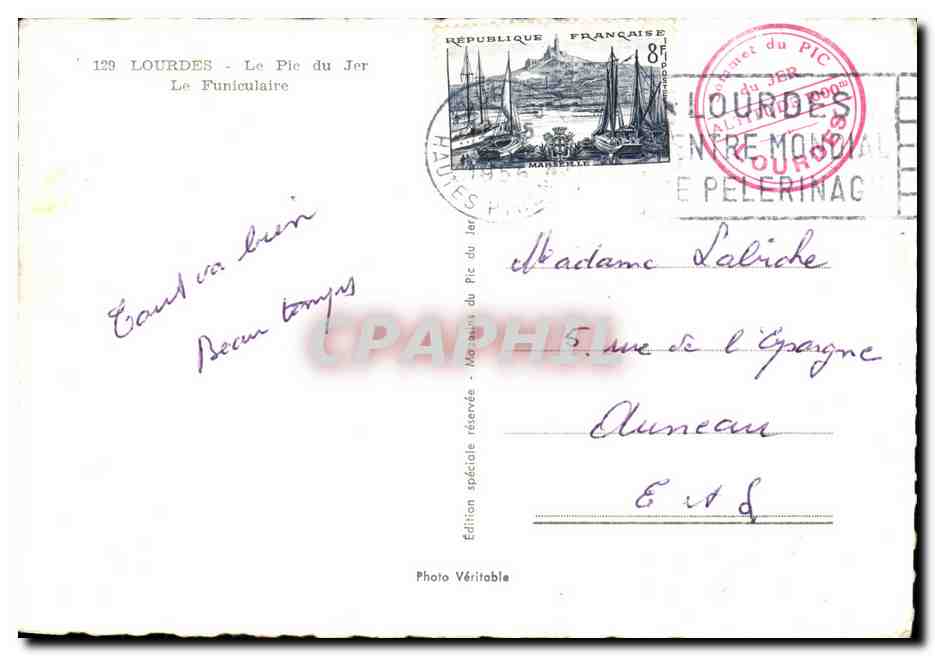 129 LOURDES - Le Pic du Jer
Le Funiculaire
RÉPUBLIQUE FRANÇAISE
8F
POSTES
MARSEILLE
HAUTES
1955
Sommet du PIC
du JER
ALTITUDE 1000m
LOURDES
LOURDES
ENTRE MONDIAL
E PELERINAG
Tout va bien
Beau temps
Madame Labiche
5, rue de l'Epargne
Auneau
E et L
Édition spéciale réservée - Magasins du Pic du Jer
Photo Véritable
CPAPHIL